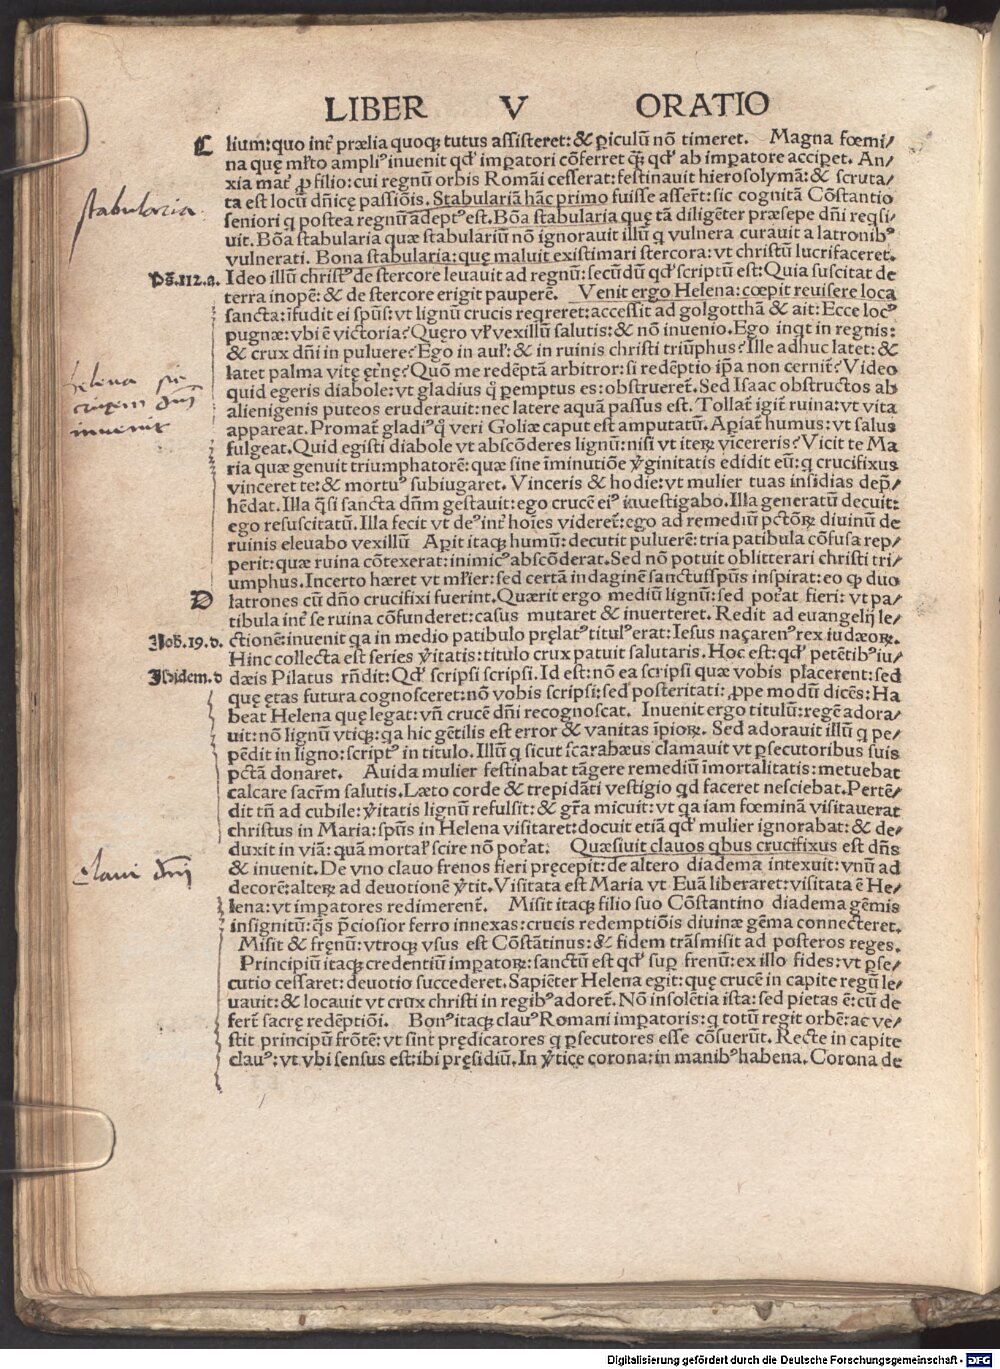 LIBER V ORATIO
C lium: quo int̃ prælia quoqꝫ tutus assisteret: & ꝑiculũ nõ timeret. Magna fœmi/
na quę mĩto ampliꝰ inuenit qđ imꝑatori cõferret q̃ꝫ qđ ab imꝑatore acciꝑet. An/
xia mat̃ ꝓ filio: cui regnũ orbis Romãi cesserat: festinauit hierosolymã: & scruta/
ta est locũ dñicę passiõis. Stabulariã hãc primo fuisse asser̃t: sic cognitã Cõstantio
seniori q postea regnũ adeptꝰ est. Bõa stabularia quę tã diligẽter præsepe dñi reqsi/
uit. Bõa stabularia quæ stabulariũ nõ ignorauit illũ q vulnera curauit a latronibꝰ
vulnerati. Bona stabularia: quę maluit existimari stercora: vt christũ lucrifaceret.
Ps̃. 112. a. Ideo illũ christꝰ de stercore leuauit ad regnũ: secũdũ qđ scriptũ est: Quia suscitat de
terra inopẽ: & de stercore erigit pauperẽ. Venit ergo Helena: cœpit reuisere loca
sancta: ĩfudit ei spũs: vt lignũ crucis reqreret: accessit ad golgotthã & ait: Ecce locꝰ
pugnæ: vbi ẽ victoria? Quęro vł vexillũ salutis: & nõ inuenio. Ego inqt in regnis:
& crux dñi in puluere? Ego in auł: & in ruinis christi triũphus? Ille adhuc latet: &
latet palma vitę ęt̃nę? Quõ me redẽptã arbitror: si redẽptio iꝑa non cernit̃? Video
quid egeris diabole: vt gladius q̃ peremptus es: obstrueret̃. Sed Isaac obstructos ab
alienigenis puteos eruderauit: nec latere aquã passus est. Tollat̃ igit̃ ruina: vt vita
appareat. Promat̃ gladiꝰ q̃ veri Goliæ caput est amputatũ. Aꝑiat̃ humus: vt salus
fulgeat. Quid egisti diabole vt abscõderes lignũ: nisi vt iterꝝ vicereris? Vicit te Ma
ria quæ genuit triumphatorẽ: quæ sine ĩminutiõe ꝟginitatis edidit eũ: q crucifixus
vinceret te: & mortuꝰ subiugaret. Vinceris & hodie: vt mulier tuas insidias dep̃/
hẽdat. Illa q̃si sancta dñm gestauit: ego crucẽ eiꝰ inuestigabo. Illa generatũ docuit:
ego resuscitatũ. Illa fecit vt deꝰ int̃ hoĩes videret̃: ego ad remediũ pctõꝝ diuinũ de
ruinis eleuabo vexillũ Aꝑit itaqꝫ humũ: decutit puluerẽ: tria patibula cõfusa rep/
perit: quæ ruina cõtexerat: inimicꝰ abscõderat. Sed nõ potuit oblitterari christi tri/
umphus. Incerto hæret vt mĩier: sed certã indaginẽ sanctusspũs inspirat: eo ꝙ duo
D latrones cũ dño crucifixi fuerint. Quærit ergo mediũ lignũ: sed pot̃at fieri: vt pa/
tibula int̃ se ruina cõfunderet: casus mutaret & inuerteret. Redit ad euangelij le/
Ioh̃. 19. d. ctionẽ: inuenit qa in medio patibulo pręlatꝰ titulꝰ erat: Iesus naçarenꝰ rex iudæoꝝ.
Hinc collecta est series ꝟitatis: titulo crux patuit salutaris. Hoc est: qđ petẽtibꝰ iu/
Ibidem. d dæis Pilatus rñdit: Qđ scripsi scripsi. Id est: nõ ea scripsi quæ vobis placerent: sed
quę ętas futura cognosceret: nõ vobis scripsi: sed posteritati: ꝓpe modũ dicẽs: Ha
beat Helena quę legat: vñ crucẽ dñi recognoscat. Inuenit ergo titulũ: regẽ adora/
uit: nõ lignũ vtiqꝫ: qa hic gẽtilis est error & vanitas ĩpioꝝ. Sed adorauit illũ q pe/
pẽdit in ligno: scriptꝰ in titulo. Illũ q sicut scarabæus clamauit vt ꝑsecutoribus suis
pctã donaret. Auida mulier festinabat tãgere remediũ ĩmortalitatis: metuebat
calcare sacr̃m salutis. Læto corde & trepidãti vestigio qd faceret nesciebat. Pertẽ/
dit tñ ad cubile: ꝟitatis lignũ refulsit: & gr̃a micuit: vt qa iam fœminã visitauerat
christus in Maria: spũs in Helena visitaret: docuit etiã qđ mulier ignorabat: & de/
duxit in viã: quã mortał scire nõ pot̃at. Quæsiuit clauos qbus crucifixus est dñs
& inuenit. De vno clauo frenos fieri pręcepit: de altero diadema intexuit: vnũ ad
decorẽ: alterꝝ ad deuotionẽ ꝟtit. Visitata est Maria vt Euã liberaret: visitata ẽ He/
lena: vt imꝑatores redimerent̃. Misit itaqꝫ filio suo Cõstantino diadema gẽmis
insignitũ: q̃s p̃ciosior ferro innexas: crucis redemptiõis diuinæ gẽma connecteret.
Misit & fręnũ: vtroqꝫ vsus est Cõstãtinus: & fidem trãsmisit ad posteros reges.
Principiũ itaqꝫ credentiũ imꝑatoꝝ: sanctũ est qđ suꝑ frenũ: ex illo fides: vt ꝑse/
cutio cessaret: deuotio succederet. Sapiẽter Helena egit: quę crucẽ in capite regũ le/
uauit: & locauit vt crux christi in regibꝰ adoret̃. Nõ insolẽtia ista: sed pietas ẽ: cũ de
fert̃ sacrę redẽptiõi. Bonꝰ itaqꝫ clauꝰ Romani imꝑatoris: q totũ regit orbẽ: ac ve/
stit principũ frõtẽ: vt sint prędicatores q ꝑsecutores esse cõsuerũt. Recte in capite
clauꝰ: vt vbi sensus est: ibi pręsidiũ. In ꝟtice corona: in manibꝰ habena. Corona de
stabularia
helena
crucem dñj
inuenit
claui dñj
Digitalisierung gefördert durch die Deutsche Forschungsgemeinschaft - DFG